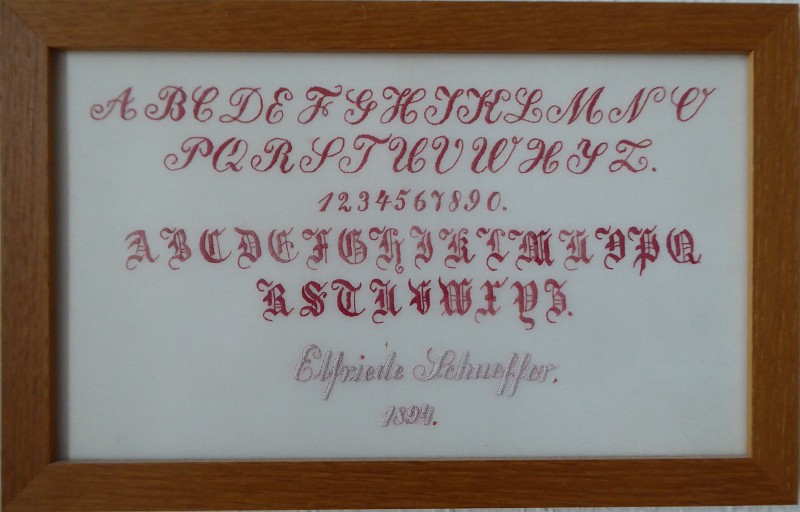 A B C D E F G H I K L M N O
P Q R S T U V W X Y Z.
1 2 3 4 5 6 7 8 9 0.
A B C D E F G H I K L M N O P Q
R S T U V W X Y Z.
Elfriede Schaeffer.
1894.